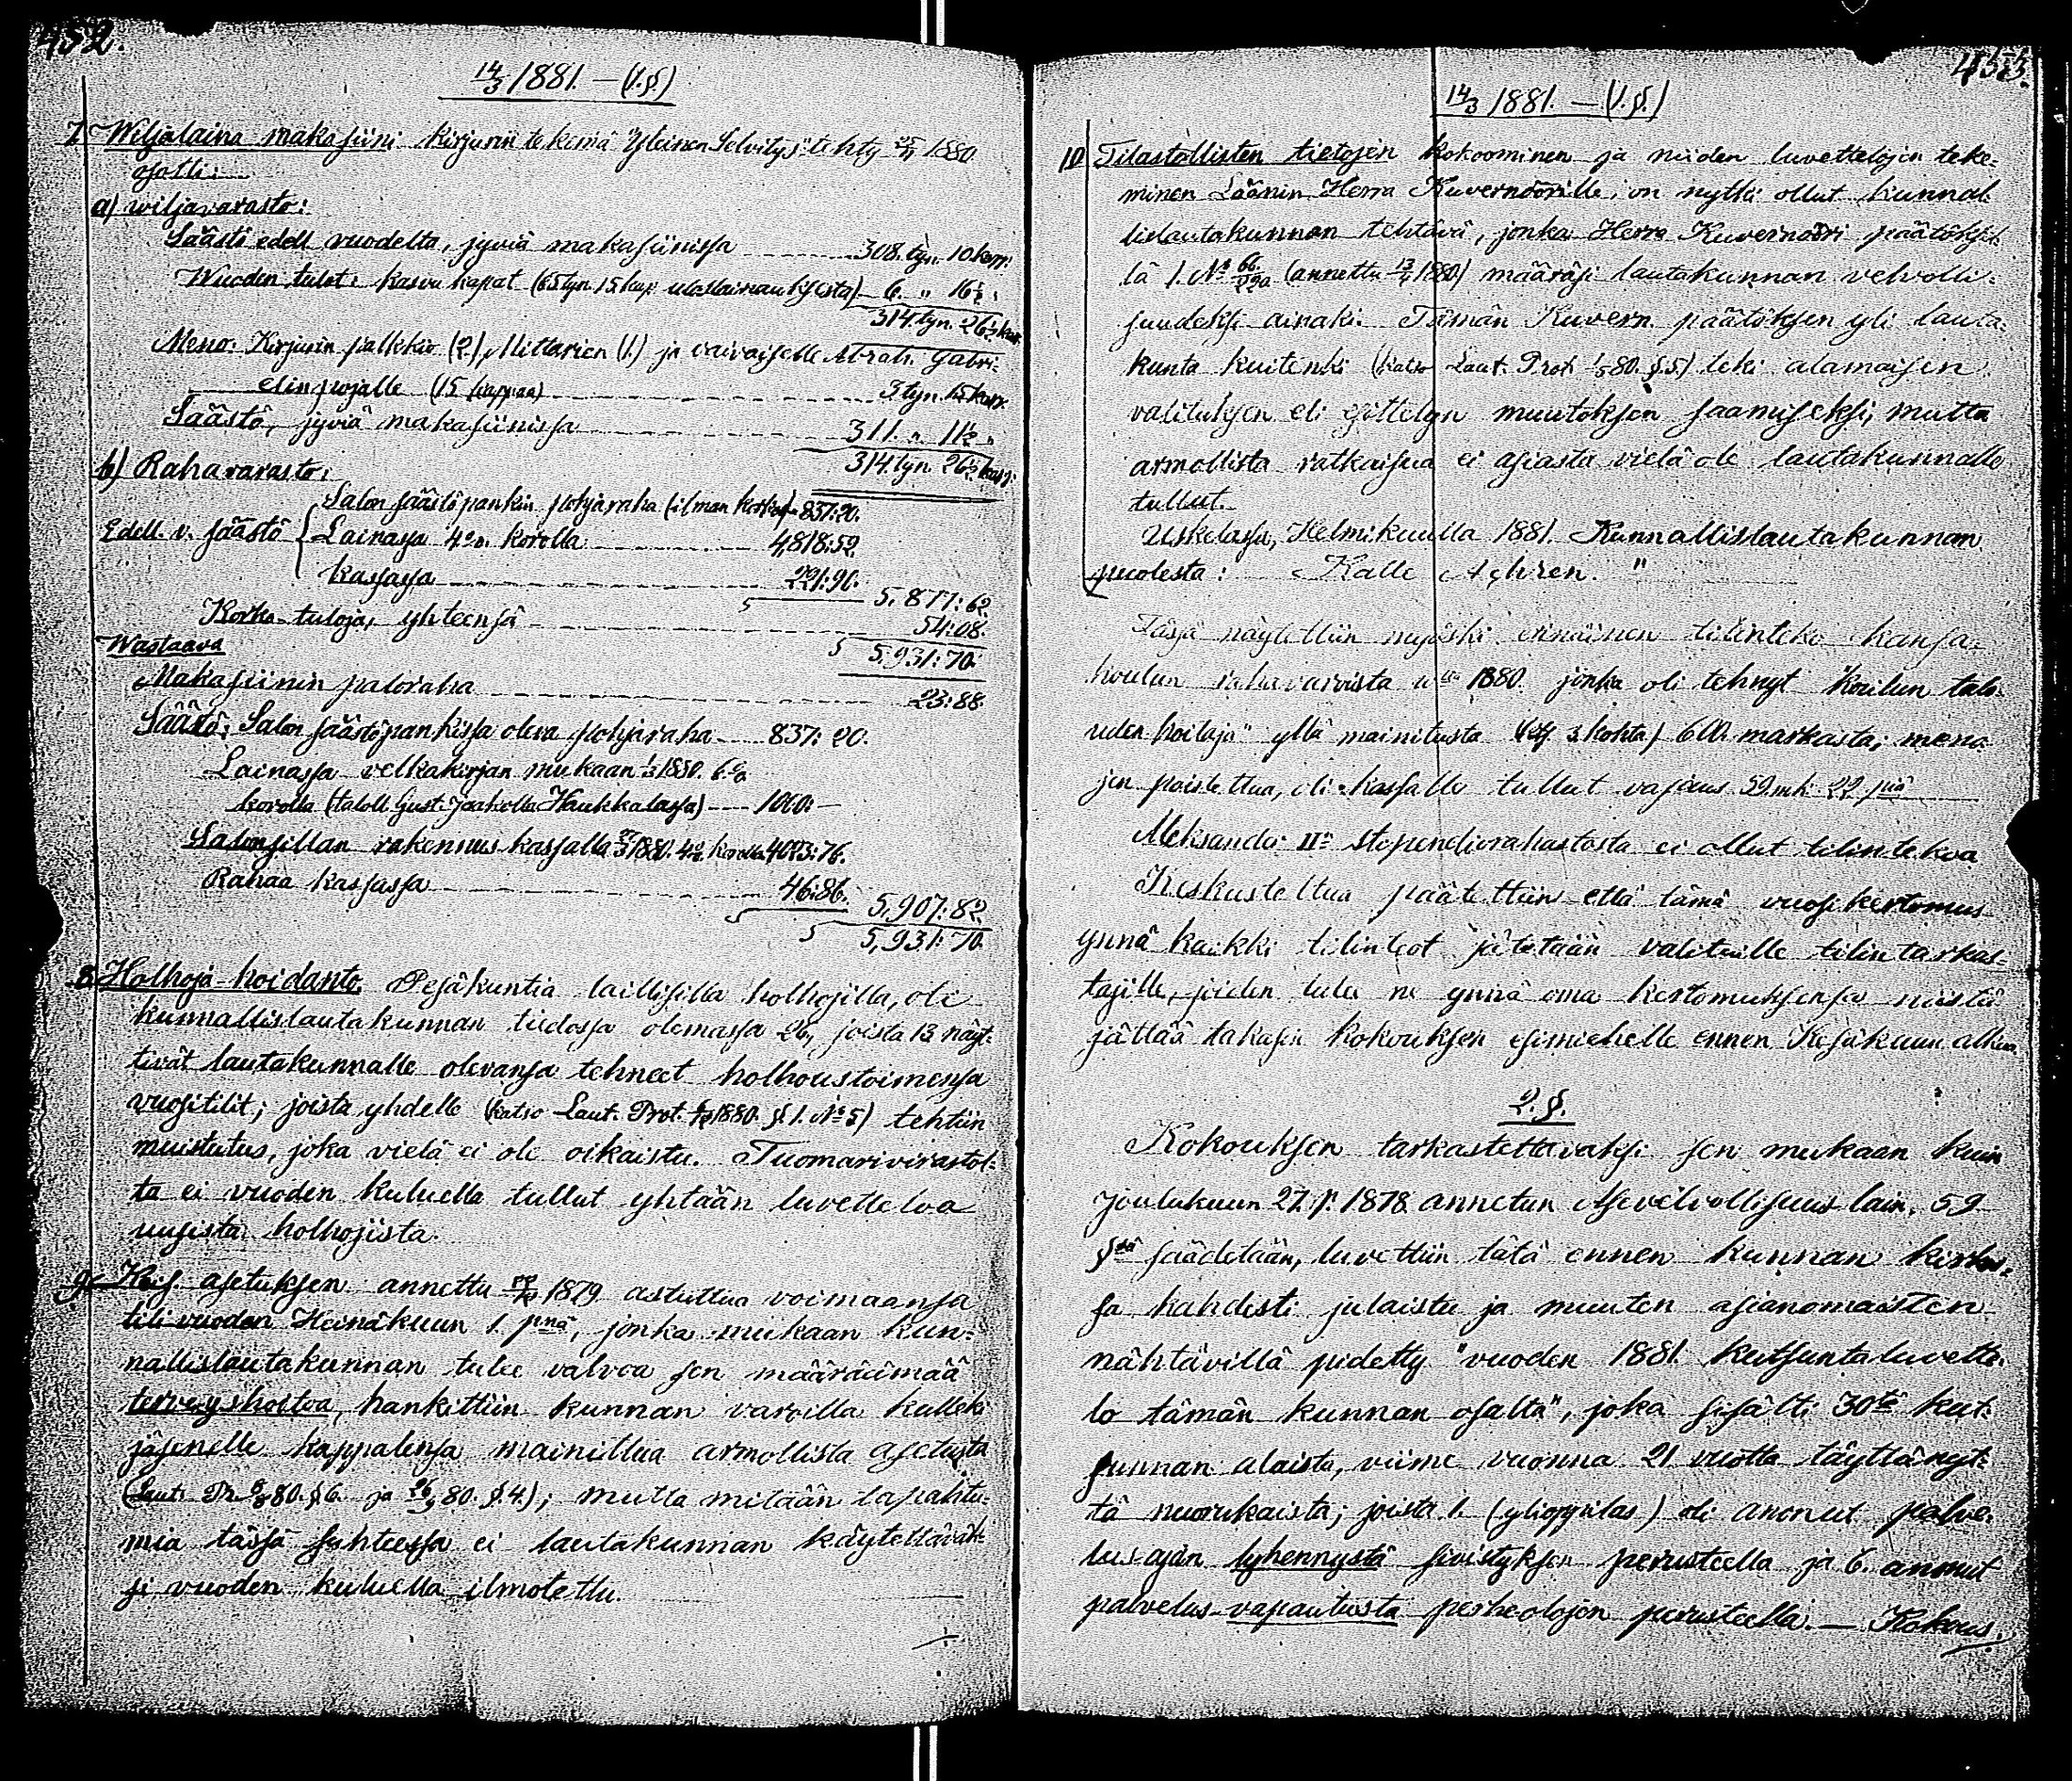 452.
14/3 1881. — (1.§.)
7. Wiljalaina makasiini kirjurin tekemä "Yleinen Selvitys" tehty 1880
osotti:
a) wiljavarasto:
Säästö edell. vuodelta, jyviä makasiinissa 308. tyn. 10 kapp.
Wuoden tulot: kasvu kapat (65 tyn 15 kap uloslainauksista) 6. " 16½ "
314. tyn. 26½ kap.
Meno: Kirjurin palkkio (2.) Mittarien (1.) ja vaivaiselle Abrah. Gabri-
elinpojalle (15 kappaa) 3 tyn. 15 kapp.
Säästö, jyviä makasiinissa 311. " 11½ "
314. tyn. 26½ kapp.
b) Rahavarasto:
Salon säästöpankin pohjaraha (ilman korkoa) 837:20.
Edell. v. säästö Lainassa 4% korolla 4,818:52.
Kassassa 221:90.
5,877:62.
Korko-tuloja, yhteensä 54:08.
5,931:70.
Wastaava
Makasiinin paloraha 23:88.
Säästö: Salon säästöpankissa oleva pohjaraha 837:20.
Lainassa velkakirjan mukaan 1/3 1880. 6%
korolla (taloll. Gust. Jaakolla Haukkalassa) 1000:—
Salonsillan rakennus kassalla 1880. 4% korolla 4023:76.
Rahaa kassassa 46:86.
5,907:82
5,931:70.
8. Holhoja-hoidanto. Pesäkuntia laillisilla holhojilla, oli
kunnallislautakunnan tiedossa olemassa 26, joista 13 näyt-
tivät lautakunnalle olevansa tehneet holhoustoimensa
vuositilit; joista yhdelle (katso Laut. Prot. 1880. §.1. No 5) tehtiin
muistutus, joka vielä ei ole oikaistu. Tuomarivirastol-
ta ei vuoden kuluella tullut yhtään luvetteloa
uusista holhojista.
9. Keis. asetuksen annettu 1879 astuttua voimaansa
tili vuoden Heinäkuun 1. pnä, jonka mukaan kun-
nallislautakunnan tulee valvoa sen määräämää
terveyshoitoa, hankittiin kunnan varoilla kulleki
jäsenelle kappalensa mainittua armollista asetusta
(Laut. Pr. 80. §.6. ja 80. §.4.); mutta mitään tapahtu-
mia tässä suhteessa ei lautakunnan käytettäväk-
si vuoden kuluella ilmotettu.
453.
14/3 1881. — (1.§.)
10 Tilastollisten tietojen kokoominen ja niiden luvettelojen teke-
minen Läänin Herra Kuvernöörille, on nytki ollut kunnal-
lislautakunnan tehtävä, jonka Herra Kuvernööri päätöksel-
lä 1. No (annettu 1880) määräsi lautakunnan velvolli-
suudeksi ainaki. Tämän Kuvern. päätöksen yli lauta-
kunta kuitenki (katso Laut. Prot 80. §.5) teki alamaisen
valituksen eli esittelyn muutoksen saamiseksi, mutta
armollista ratkaisua ei asiasta vielä ole lautakunnalle
tullut.
Uskelassa, Helmikuulla 1881. Kunnallislautakunnan
puolesta: Kalle Achrén. "
Tässä näytettiin myöski erinäinen tilinteko kansa-
koulun rahavaroista v:lta 1880. jonka oli tehnyt "koulun talo-
uden hoitaja" yllä mainitusta (3 kohta) 600. markasta; meno-
jen poistettua, oli kassalle tullut vajaus 59 mk. 22 piä
Aleksander II:n stipendiorahastosta ei ollut tilintekoa
Keskusteltua päätettiin että tämä vuosikertomus
ynnä kaikki tilinteot jätetään valituille tilintarkas-
tajille, joiden tulee ne ynnä oma kertomuksensa niistä
jättää takasin kokouksen esimiehelle ennen Kesäkuun alkua.
2. §.
Kokouksen tarkastettavaksi sen mukaan kuin
Joulukuun 27. p. 1878 annetun Asevelvollisuus lain, 59
§ssä säädetään, luvettiin tätä ennen kunnan kirkos-
sa kahdesti julaistu ja muuten asianomaisten
nähtävillä pidetty "vuoden 1881. kutsuntaluvette-
lo tämän kunnan osalta", joka sisälti 30tä kut-
sunnan alaista, viime vuonna 21 vuotta täyttänyt-
tä nuorukaista; joista 1. (ylioppilas) oli anonut palve-
lus-ajan lyhennystä sivistyksen perusteella ja 6. anonut
palvelus-vapautusta perheolojen perusteella. — Kokous